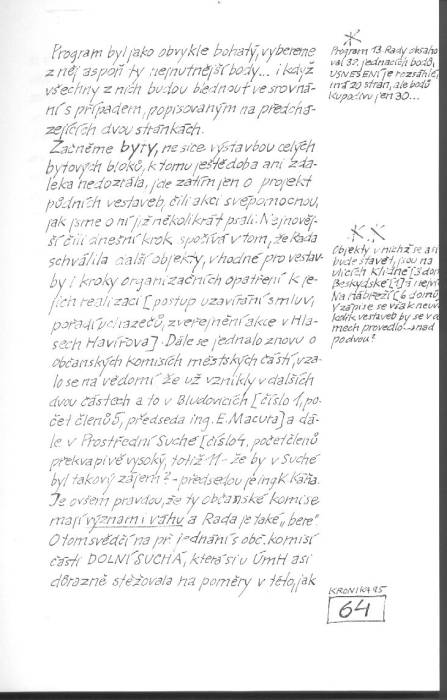 Program byl jako obvykle bohatý, vybereme
z něj aspoň ty nejnutnější body... i když
všechny z nich budou blednout ve srovná-
ní s případem, popisovaným na předchá-
zejících dvou stránkách.
Začněme byty, ne sice výstavbou celých
bytových bloků, k tomu ještě doba ani zda-
leka nedozrála, jde zatím jen o projekt
půdních vestaveb, čili akci svépomocnou,
jak jsme o ní již několikrát psali. Nejnověj-
ší čili dnešní krok spočívá v tom, že Rada
schválila další objekty, vhodné pro vestav-
by i kroky organizačních opatření k je-
jich realizaci [postup uzavírání smluv,
pořadí uchazečů, zveřejnění akce v Hla-
sech Havířova]. Dále se jednalo znovu o
občanských komisích městských částí, vza-
lo se na vědomí že už vznikly v dalších
dvou částech a to v Bludovicích [číslo 1, po-
čet členů 5, předseda ing. E. Macura] a dá-
le v Prostřední Suché [číslo 4, počet členů
překvapivě vysoký, totiž 11 - že by v Suché
byl takový zájem? - předsedou je ing K. Káňa.
Je ovšem pravdou, že ty občanské komise
mají význam i váhu a Rada je také „bere“
O tom svědčí na př. jednání s obč. komisí
části DOLNÍ SUCHÁ, která si u ÚmH asi
důrazně stěžovala na poměry v této, jak
Program 13. Rady obsaho
val 32 jednacích bodů,
USNESENÍ je rozsáhlé,
má 20 stran, ale bodů
kupodivu jen 30...
Objekty v nichž se asi
bude stavět, jsou na
ulicích Klidné [3 dom
Beskydské
Na Nábřeží [6 domů
V zápise se však neuv
kolik vestaveb by se v do
mech provedlo - snad
po dvou?
KRONIKA 95
64